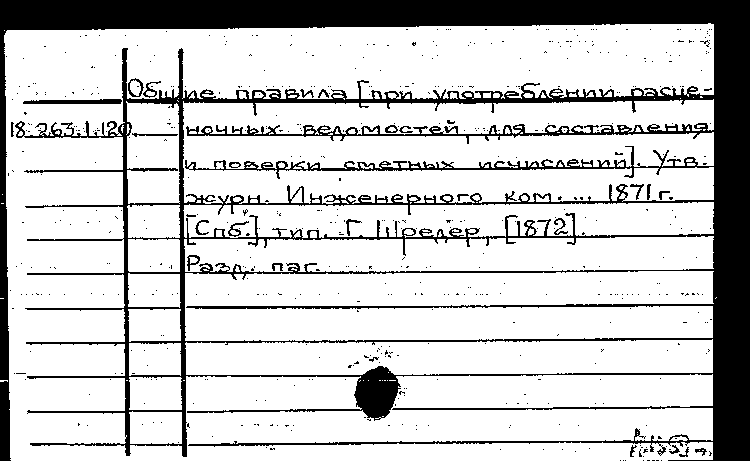 Общие правила [при употреблении расце-
18.263.1.120. ночных ведомостей, для составления
и поверки сметных исчислений]. Утв.
журн. Инженерного ком. ... 1871 г.
[Спб.], тип. Г. Шредер, [1872].
Разд. паг.